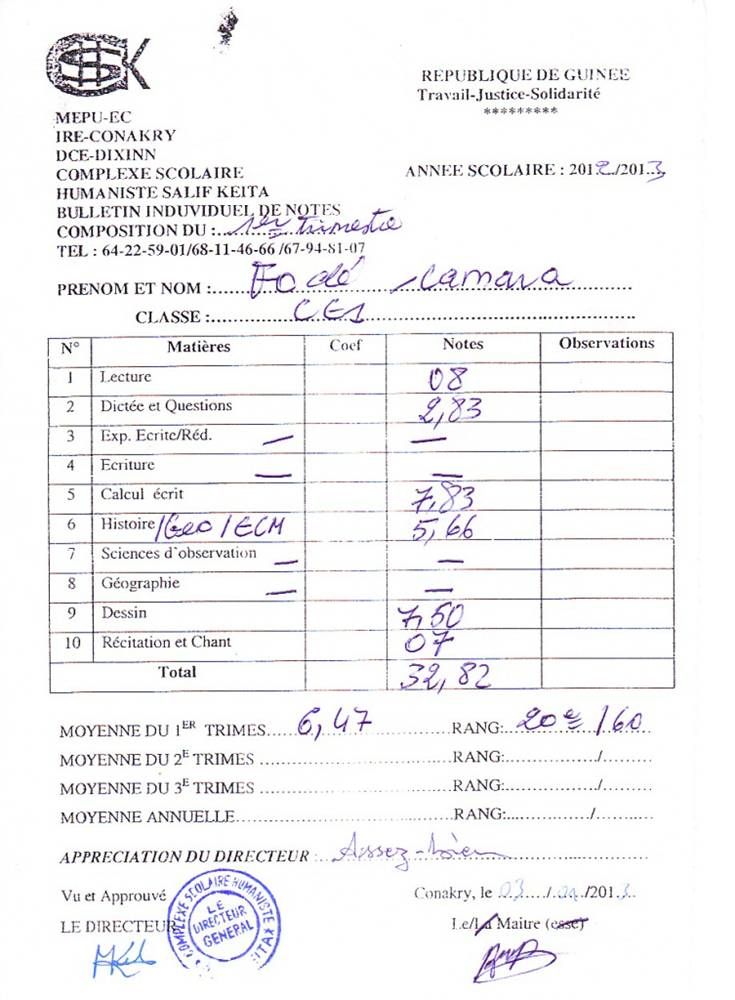 HSK
REPUBLIQUE DE GUINEE
Travail-Justice-Solidarité
*********
MEPU-EC
IRE-CONAKRY
DCE-DIXINN
COMPLEXE SCOLAIRE
HUMANISTE SALIF KEITA
ANNEE SCOLAIRE : 2012./2013
BULLETIN INDUVIDUEL DE NOTES
COMPOSITION DU :..1er trimestre
TEL : 64-22-59-01/68-11-46-66 /67-94-81-07
PRENOM ET NOM :......Fodé Camara......
CLASSE :............CE1......
N° Matières Coef Notes Observations
1 Lecture 08
2 Dictée et Questions 2,83
3 Exp. Ecrite/Réd. — —
4 Ecriture — —
5 Calcul écrit 7,83
6 Histoire/Geo/ECM 5,66
7 Sciences d'observation — —
8 Géographie — —
9 Dessin 7,50
10 Récitation et Chant 07
Total 32,82
MOYENNE DU 1ER TRIMES......6,47......RANG:..20e/60
MOYENNE DU 2E TRIMES ......RANG:............/.........
MOYENNE DU 3E TRIMES ......RANG:............/.........
MOYENNE ANNUELLE......RANG:............/.........
APPRECIATION DU DIRECTEUR :...Assez-bien......
Vu et Approuvé
Conakry, le 03..../.01../2013.
LE DIRECTEUR
Le/La Maitre (esse)
COMPLEXE SCOLAIRE HUMANISTE
KEITA
LE
DIRECTEUR
GENERAL